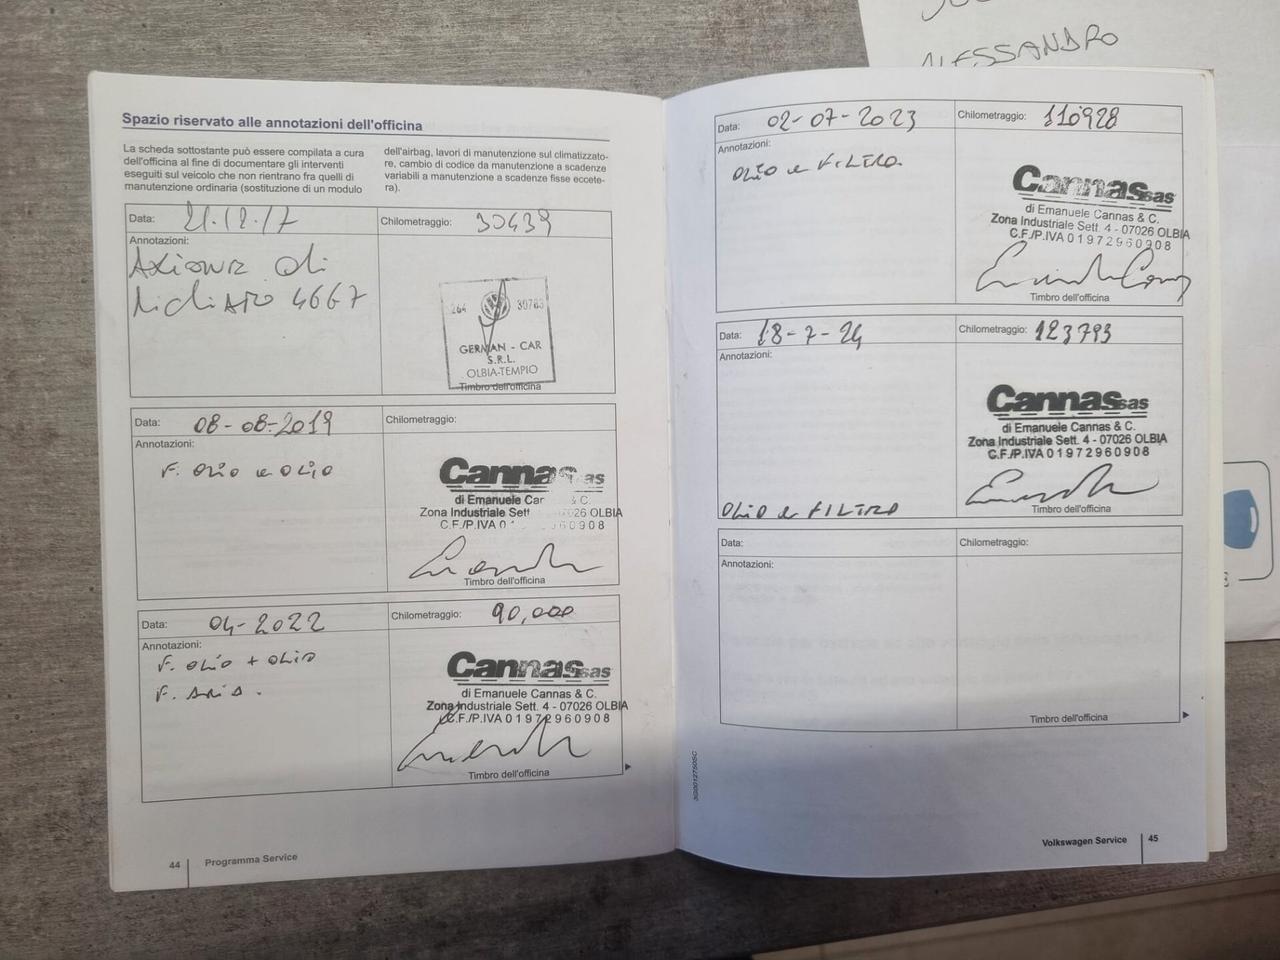 ALESSANDRO
Spazio riservato alle annotazioni dell'officina
La scheda sottostante può essere compilata a cura
dell'officina al fine di documentare gli interventi
eseguiti sul veicolo che non rientrano fra quelli di
manutenzione ordinaria (sostituzione di un modulo
dell'airbag, lavori di manutenzione sul climatizzato-
re, cambio di codice da manutenzione a scadenze
variabili a manutenzione a scadenze fisse eccete-
ra).
Data: 21.12.17 Chilometraggio: 30439
Annotazioni:
Azione di
richiamo 4667
264 30783
GERMAN - CAR
S.R.L.
OLBIA-TEMPIO
Timbro dell'officina
Data: 08-08-2019 Chilometraggio:
Annotazioni:
F. olio e olio
Cannas sas
di Emanuele Can & C.
Zona Industriale Sett 07026 OLBIA
C.F./P.IVA 0 1 60908
Timbro dell'officina
Data: 04-2022 Chilometraggio: 90,000
Annotazioni:
F. olio + olio
F. aria.
Cannas sas
di Emanuele Cannas & C.
Zona Industriale Sett. 4 - 07026 OLBIA
C.F./P.IVA 01972960908
Timbro dell'officina
44 Programma Service
Data: 02-07-2023 Chilometraggio: 110928
Annotazioni:
olio e FILTRO
Cannas sas
di Emanuele Cannas & C.
Zona Industriale Sett. 4 - 07026 OLBIA
C.F./P.IVA 01972960908
Timbro dell'officina
Data: 18-7-24 Chilometraggio: 123793
Annotazioni:
Olio e FILTRO
Cannas sas
di Emanuele Cannas & C.
Zona Industriale Sett. 4 - 07026 OLBIA
C.F./P.IVA 01972960908
Timbro dell'officina
Data: Chilometraggio:
Annotazioni:
Timbro dell'officina
3G0012750SC
Volkswagen Service 45